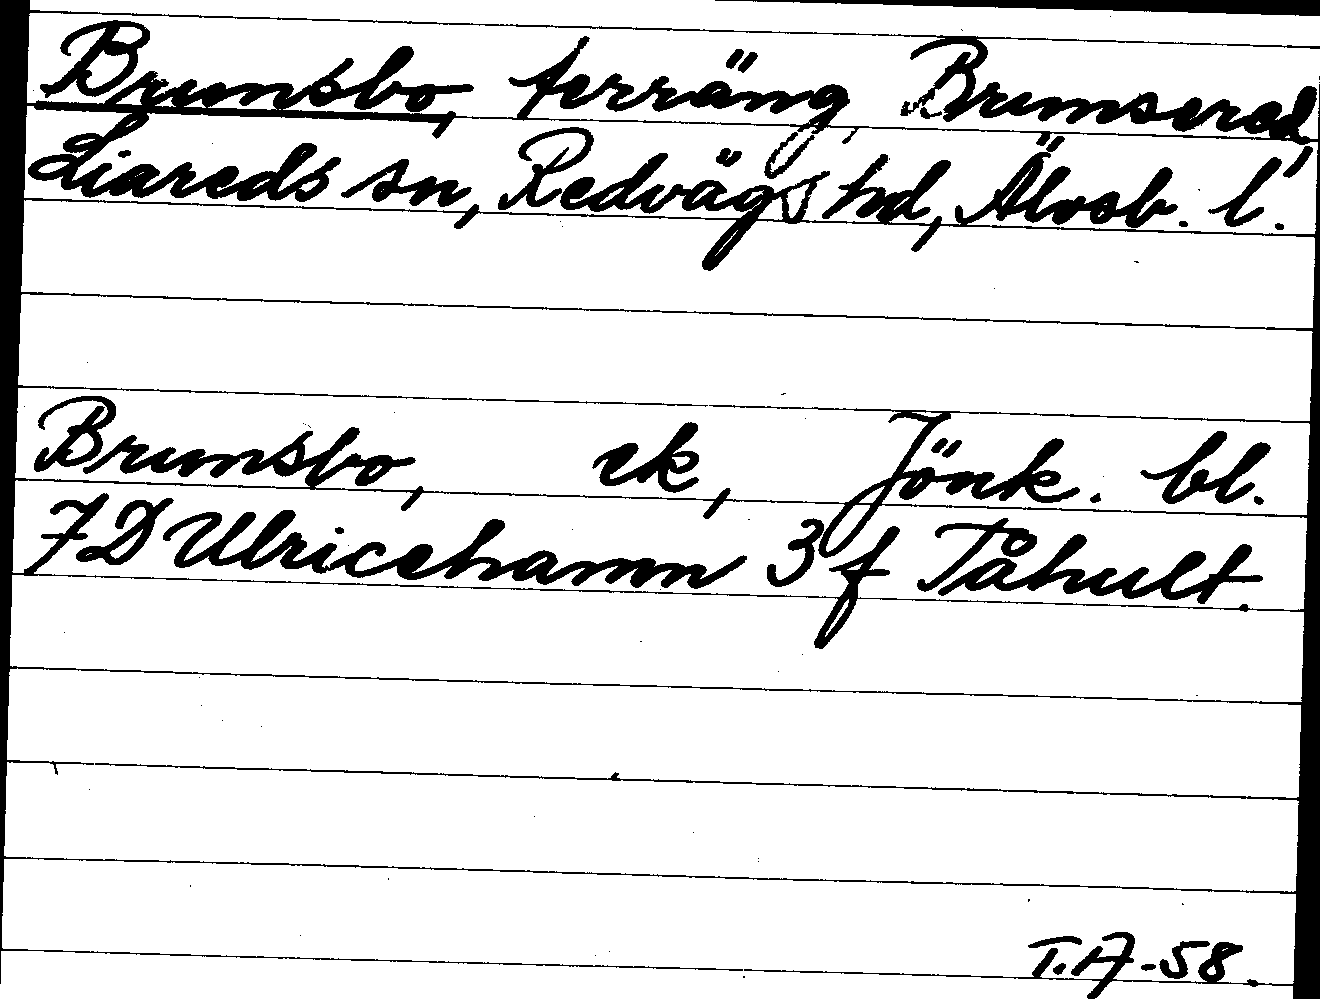 Brumsbo, terräng, Brumsered,
Liareds sn, Redvägs hd, Älvsb. l.
Brumsbo, ek, Jönk. bl.
7D Ulricehamn 3 f Tåhult.
T.A-58.